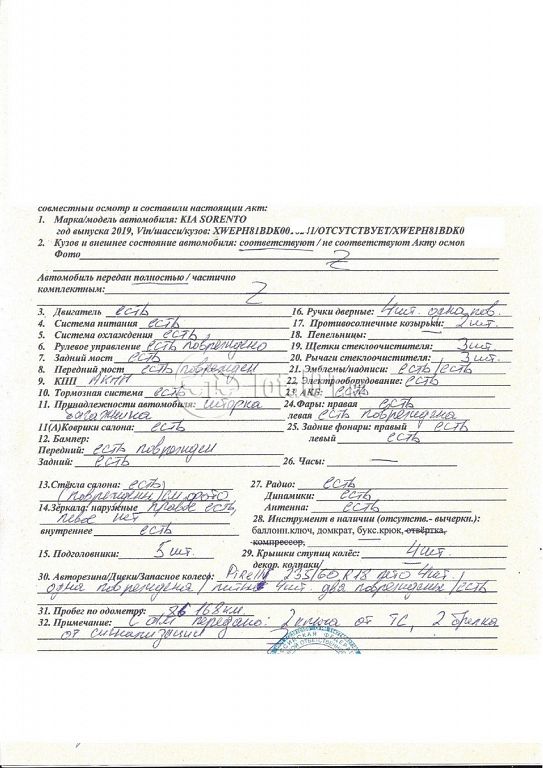 совместный осмотр и составили настоящий Акт:
1. Марка/модель автомобиля: KIA SORENTO
год выпуска 2019, Vin/шасси/кузов: XWEPH81BDK00 /ОТСУТСТВУЕТ/XWEPH81BDK0
2. Кузов и внешнее состояние автомобиля: соответствуют / не соответствуют Акту осмот
Фото
Автомобиль передан полностью / частично
комплектным:
3. Двигатель есть
4. Система питания есть
5. Система охлаждения есть
6. Рулевое управление есть повреждено
7. Задний мост есть
8. Передний мост есть /поврежден
9. КПП АКПП
10. Тормозная система есть
11. Принадлежности автомобиля: шторка
багажника
11(А)Коврики салона: есть
12. Бампер:
Передний: есть поврежден
Задний: есть
16. Ручки дверные: 4 шт. одна пов.
17. Противосолнечные козырьки: 2 шт.
18. Пепельницы: —
19. Щетки стеклоочистителя: 3 шт.
20. Рычаги стеклоочистителя: 3 шт.
21. Эмблемы/надписи: есть /есть
22. Электрооборудование: есть
23. АКБ: есть
24.Фары: правая есть
левая есть повреждена
25. Задние фонари: правый есть
левый есть
26. Часы: —
13.Стёкла салона: есть
(повреждены/см фото)
14.Зеркала: наружные правое есть,
левое нет
внутреннее есть
15. Подголовники: 5 шт.
27. Радио: есть
Динамики: есть
Антенна: есть
28. Инструмент в наличии (отсутств.- вычеркн.):
баллонн.ключ, домкрат, букс.крюк, отвёртка,
компрессор,
29. Крышки ступиц колёс: 4 шт.
декор. колпаки/ —
30. Авторезина/Диски/Запасное колесо: Pirelli 235/60 R18 лето 4 шт. /
одна повреждена / литые 4 шт. два повреждены / есть
31. Пробег по одометру: 86 168 км.
32. Примечание: С а/м передано: 2 ключа от ТС, 2 брелка
от сигнализации